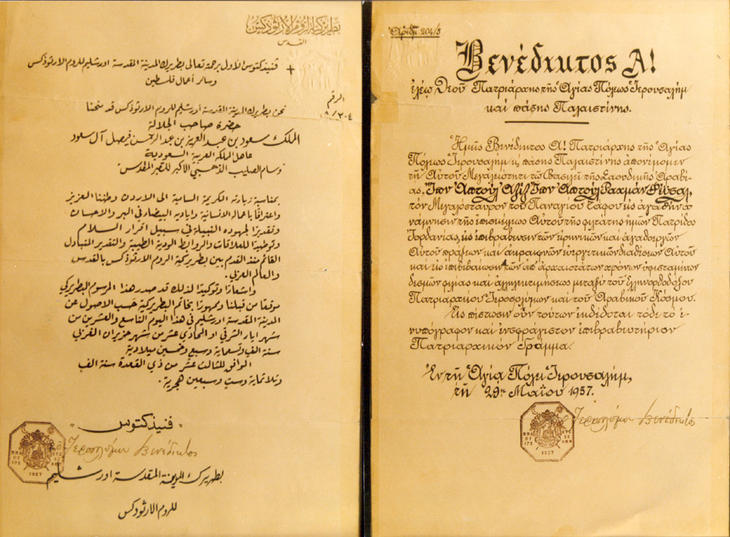 بطريركية الروم الارثوذكس
القدس
فنيذكتوس الأول برحمة الله تعالى بطريرك المدينة المقدسة اورشليم للروم الارثوذكس
وسائر أعمال فلسطين
الرقم
نحن بطريرك المدينة المقدسة اورشليم للروم الارثوذكس قد منحنا
حضرة صاحب الجلالة
الملك سعود بن عبد العزيز بن عبد الرحمن فيصل آل سعود
عاهل المملكة العربية السعودية
وسام الصليب الذهبي الاكبر للقبر المقدس
بمناسبة زيارته الكريمة السامية الى الاردن وطننا العزيز
واعترافا باعماله الانسانية واياديه البيضاء في البر والاحسان
وتقديرا لجهوده النبيلة في سبيل اقرار السلام
وتوطيدا للعلاقات والروابط الودية الطيبة والتقدير المتبادل
القائم منذ القدم بين بطريركية الروم الارثوذكس بالقدس
والعالم العربي.
واشعارا وتوكيدا لذلك قد صدر هذا المرسوم البطريركي
موقعا من قبلنا وممهورا بخاتم البطريركية حسب الاصول عن
المدينة المقدسة اورشليم في هذا اليوم التاسع والعشرين من
شهر ايار الشرقي او الحادي عشر من شهر حزيران الغربي
سنة الف وتسعماية وسبع وخمسين ميلادية
الموافق للثالث عشر من ذي القعدة سنة الف
وثلاثماية وست وسبعين هجرية.
فنيذكتوس
Ἱεροσολύμων Βενέδικτος
1957
بطريرك المدينة المقدسة اورشليم
للروم الارثوذكس
Ἀριθ. 204/3
Βενέδικτος Α!
ἐλέῳ Θεοῦ Πατριάρχης τῆς Ἁγίας Πόλεως Ἱερουσαλὴμ
καὶ πάσης Παλαιστίνης.
Ἡμεῖς Βενέδικτος Α! Πατριάρχης τῆς Ἁγίας
Πόλεως Ἱερουσαλὴμ κ πάσης Παλαιστίνης ἀπονέμομεν
τῇ Αὐτοῦ Μεγαλειότητι τῷ Βασιλεῖ τῆς Σαουδικῆς Ἀραβίας,
Ἰπν Ἀπτούλ Ἀζὶζ Ἰπν Ἀπτούλ Ραχμὰν Φέϊσαλ,
τὸν Μεγαλόσταυρον τοῦ Παναγίου Τάφου εἰς ἀγαθὴν ἀ-
νάμνησιν τῆς ἐπισκέψεως Αὐτοῦ τῆς φιλτάτης ἡμῶν Πατρίδος
Ἰορδανίας, εἰς ἐπιβράβευσιν τῶν εἰρηνικῶν καὶ ἀγαθοεργῶν
Αὐτοῦ πράξεων καὶ
Αὐτοῦ καὶ εἰς ἐπιβεβαίωσιν τῶν ἀπ' ἀρχαιοτάτων χρόνων ὑφισταμένων
δεσμῶν φιλίας καὶ ἀλληλεκτιμήσεως μεταξὺ τοῦ Ἑλληνορθοδόξου
Πατριαρχείου Ἱεροσολύμων καὶ τοῦ Ἀραβικοῦ Κόσμου.
Εἰς πίστωσιν οὖν τούτων ἐκδίδοται τόδε τὸ ἐ-
νυπόγραφον καὶ ἐνσφράγιστον ἐπιβραβευτήριον
Πατριαρχικὸν Γράμμα.
Ἐν τῇ Ἁγίᾳ Πόλει Ἱερουσαλήμ,
τῇ 29ῃ Μαΐου 1957.
Ἱεροσολύμων Βενέδικτος
1957